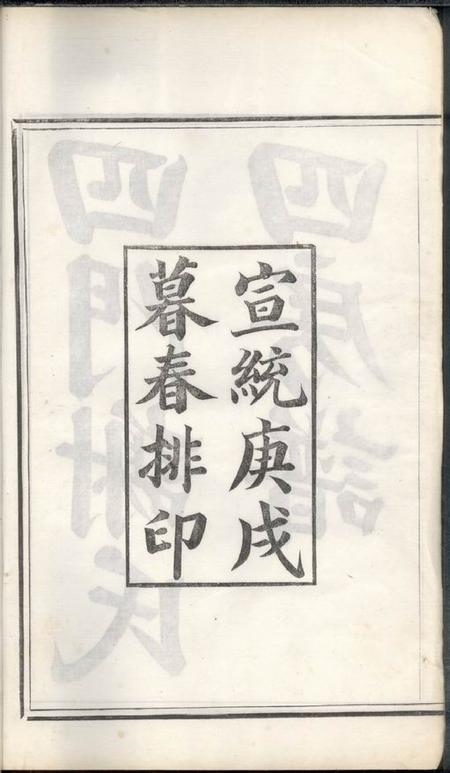 宣統庚戌
暮春排印